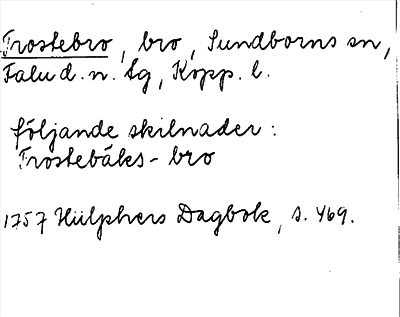 Frostebro, bro, Sundborns sn,
Falu d. n. tg, Kopp. l.
följande skilnader:
Frostebäks-bro
1757 Hülphers Dagbok, s. 469.